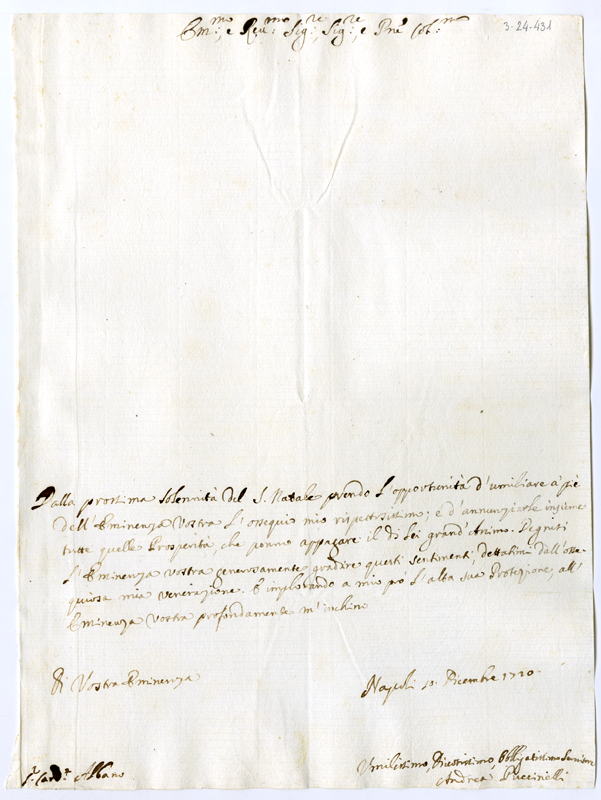 3-24-431
Em:mo, e Reu:mo Sig:re, Sig:re, e Pne Col:mo
Dalla prossima Solennità del S. Natale prendo l'opportunità d'umiliare à piè
dell'Eminenza Vostra l'ossequio mio rispettosissimo; e d'annunziarle insieme
tutte quelle Prosperità, che ponno appagare il di Lei grand'Animo. Degniti
l'Eminenza Vostra generosamente gradire questi sentimenti, dettatimi dall'osse-
quiosa mia venerazione. E implorando a mio prò l'alta sua Protezione, all'
Eminenza Vostra profondamente m'inchino
Di Vostra Eminenza
Napoli Dicembre 1720.
S.r Card.l Albano
Umilissimo, Divotissimo, Obbligatissimo Servitore
Andrea Puccinelli